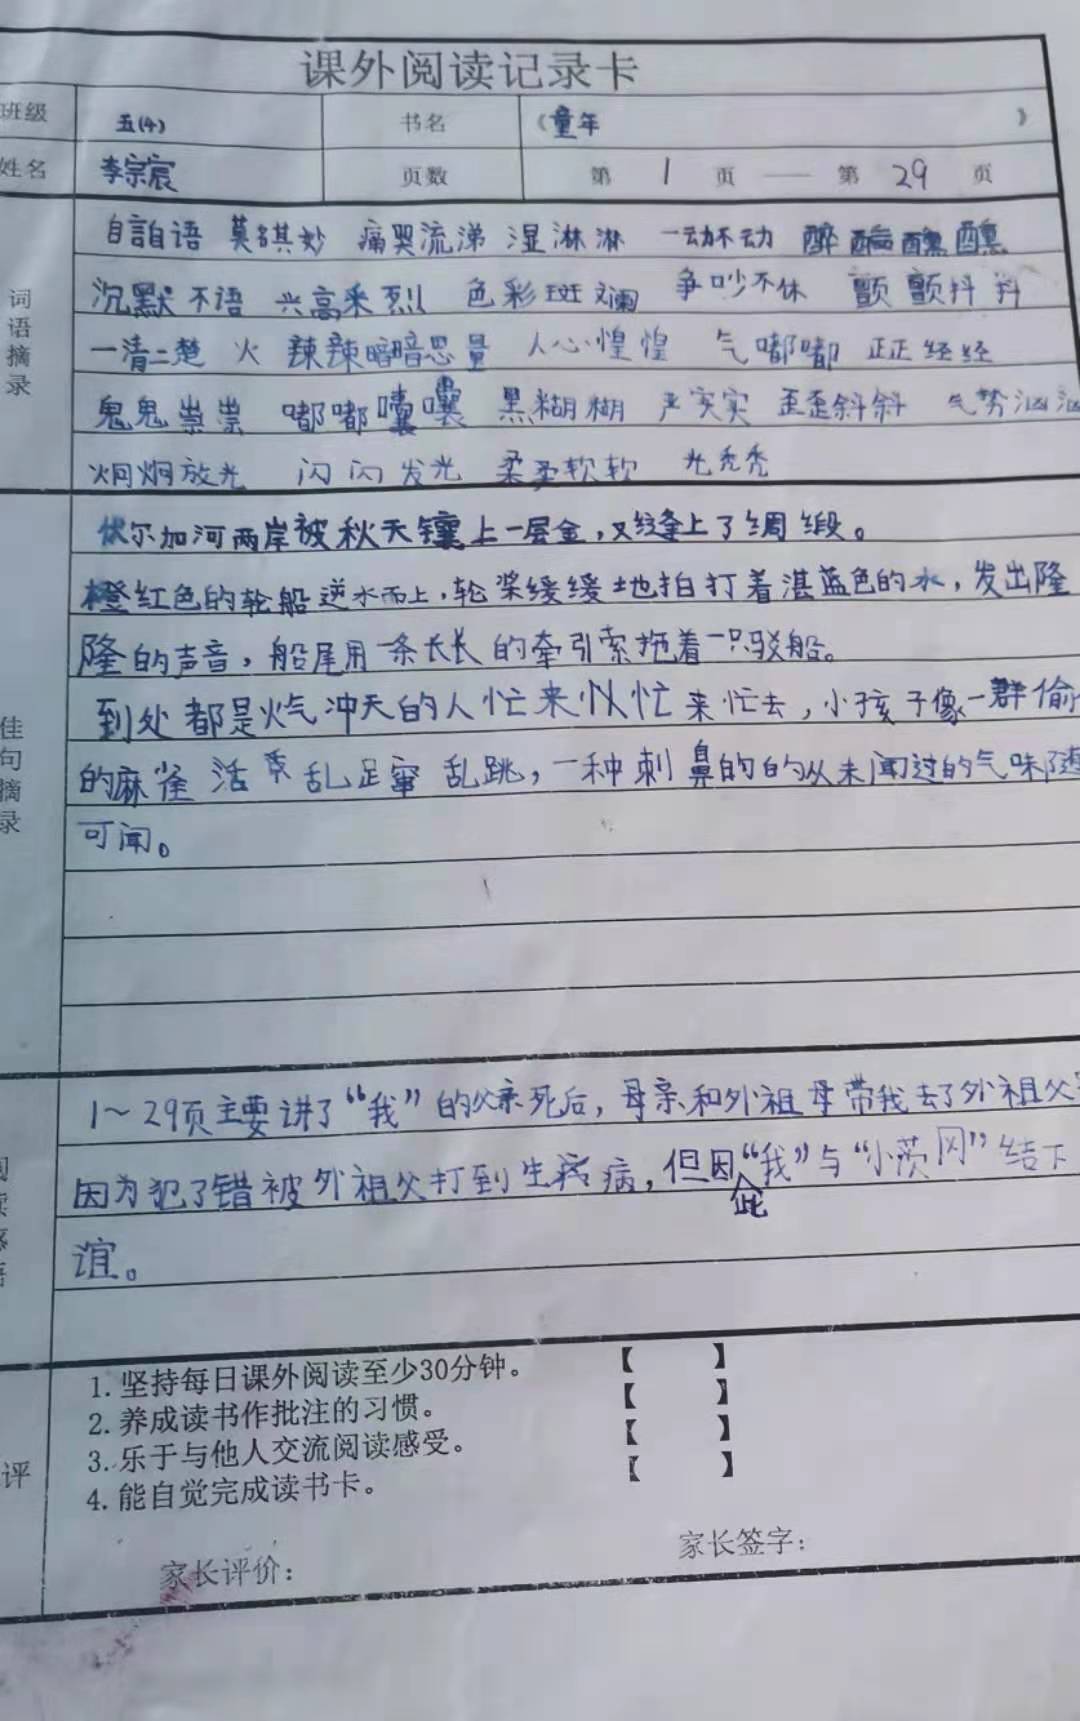 课外阅读记录卡
班级 五(4) 书名 （童年 ）
姓名 李宗宸 页数 第 1 页 —— 第 29 页
词语摘录
自言自语 莫名其妙 痛哭流涕 湿淋淋 一动不动 醉醺醺
沉默不语 兴高采烈 色彩斑斓 争吵不休 颤颤抖抖
一清二楚 火辣辣 暗暗思量 人心惶惶 气嘟嘟 正正经经
鬼鬼祟祟 嘟嘟囔囔 黑糊糊 严实实 歪歪斜斜 气势汹汹
炯炯放光 闪闪发光 柔柔软软 光秃秃
佳句摘录
伏尔加河两岸被秋天镶上一层金，又缝上了绸缎。
橙红色的轮船逆水而上，轮桨缓缓地拍打着湛蓝色的水，发出隆
隆的声音，船尾用一条长长的牵引索拖着一只驳船。
到处都是火气冲天的人忙来忙来忙去，小孩子像一群偷
的麻雀活乱足窜乱跳，一种刺鼻的的从未闻过的气味随
可闻。
1～29页主要讲了“我”的父亲死后，母亲和外祖母带我去了外祖父
因为犯了错被外祖父打到生病，但因此“我”与“小茨冈”结下
谊。
评
1.坚持每日课外阅读至少30分钟。 【 】
2.养成读书作批注的习惯。 【 】
3.乐于与他人交流阅读感受。 【 】
4.能自觉完成读书卡。 【 】
家长评价： 家长签字：